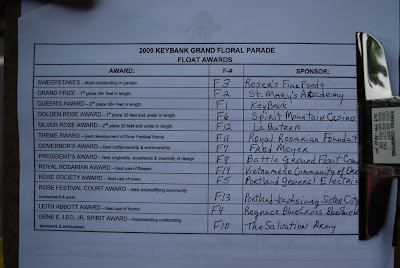 2009 KEYBANK GRAND FLORAL PARADE
FLOAT AWARDS
AWARD: F-# SPONSOR:
SWEEPSTAKES – Most outstanding in parade F3 Reser's Fine Foods
GRAND PRIZE – 1st place 30+ feet in length F2 St. Mary's Academy
QUEEN'S AWARD – 2nd place 30+ feet in length F1 KeyBank
GOLDEN ROSE AWARD – 1st place 35 feet and under in length F6 Spirit Mountain Casino
SILVER ROSE AWARD – 2nd place 35 feet and under in length F12
THEME AWARD – Best development of Rose Festival theme F11 Royal Rosarian Foundat
GOVERNOR'S AWARD – Best craftsmanship & workmanship F7 Fred Meyer
PRESIDENT'S AWARD – Best originality, excellence & creativity of design F8 Battle Ground Float Com
ROYAL ROSARIAN AWARD – Best use of flowers F14 Vietnamese Community of Ore
ROSE SOCIETY AWARD – Best use of roses F5 Portland General Electric
ROSE FESTIVAL COURT AWARD – Best exemplifying community
involvement & pride F13 Portland-Kaohsiung Sister City
LEITH ABBOTT AWARD – Best use of humor F4 Regence BlueCross BlueShield
GENE E. LEO, JR. SPIRIT AWARD – Representing outstanding
teamwork & enthusiasm F10 The Salvation Army